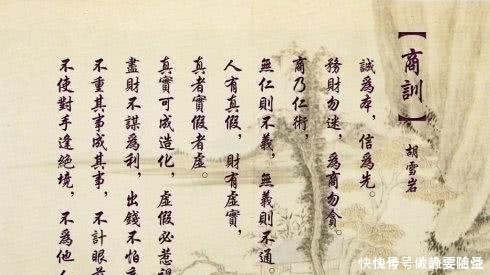 【商訓】
胡雪岩
誠爲本，信爲先。
務財勿迷，爲商勿貪。
商乃仁術，
無仁則不義，無義則不通。
人有真假，財有虛實，
真者實假者虛。
真實可成造化，虛假必惹
盡財不謀爲利，出錢不怕
不重其事成其事，不計眼
不使對手逢絕境，不爲他人